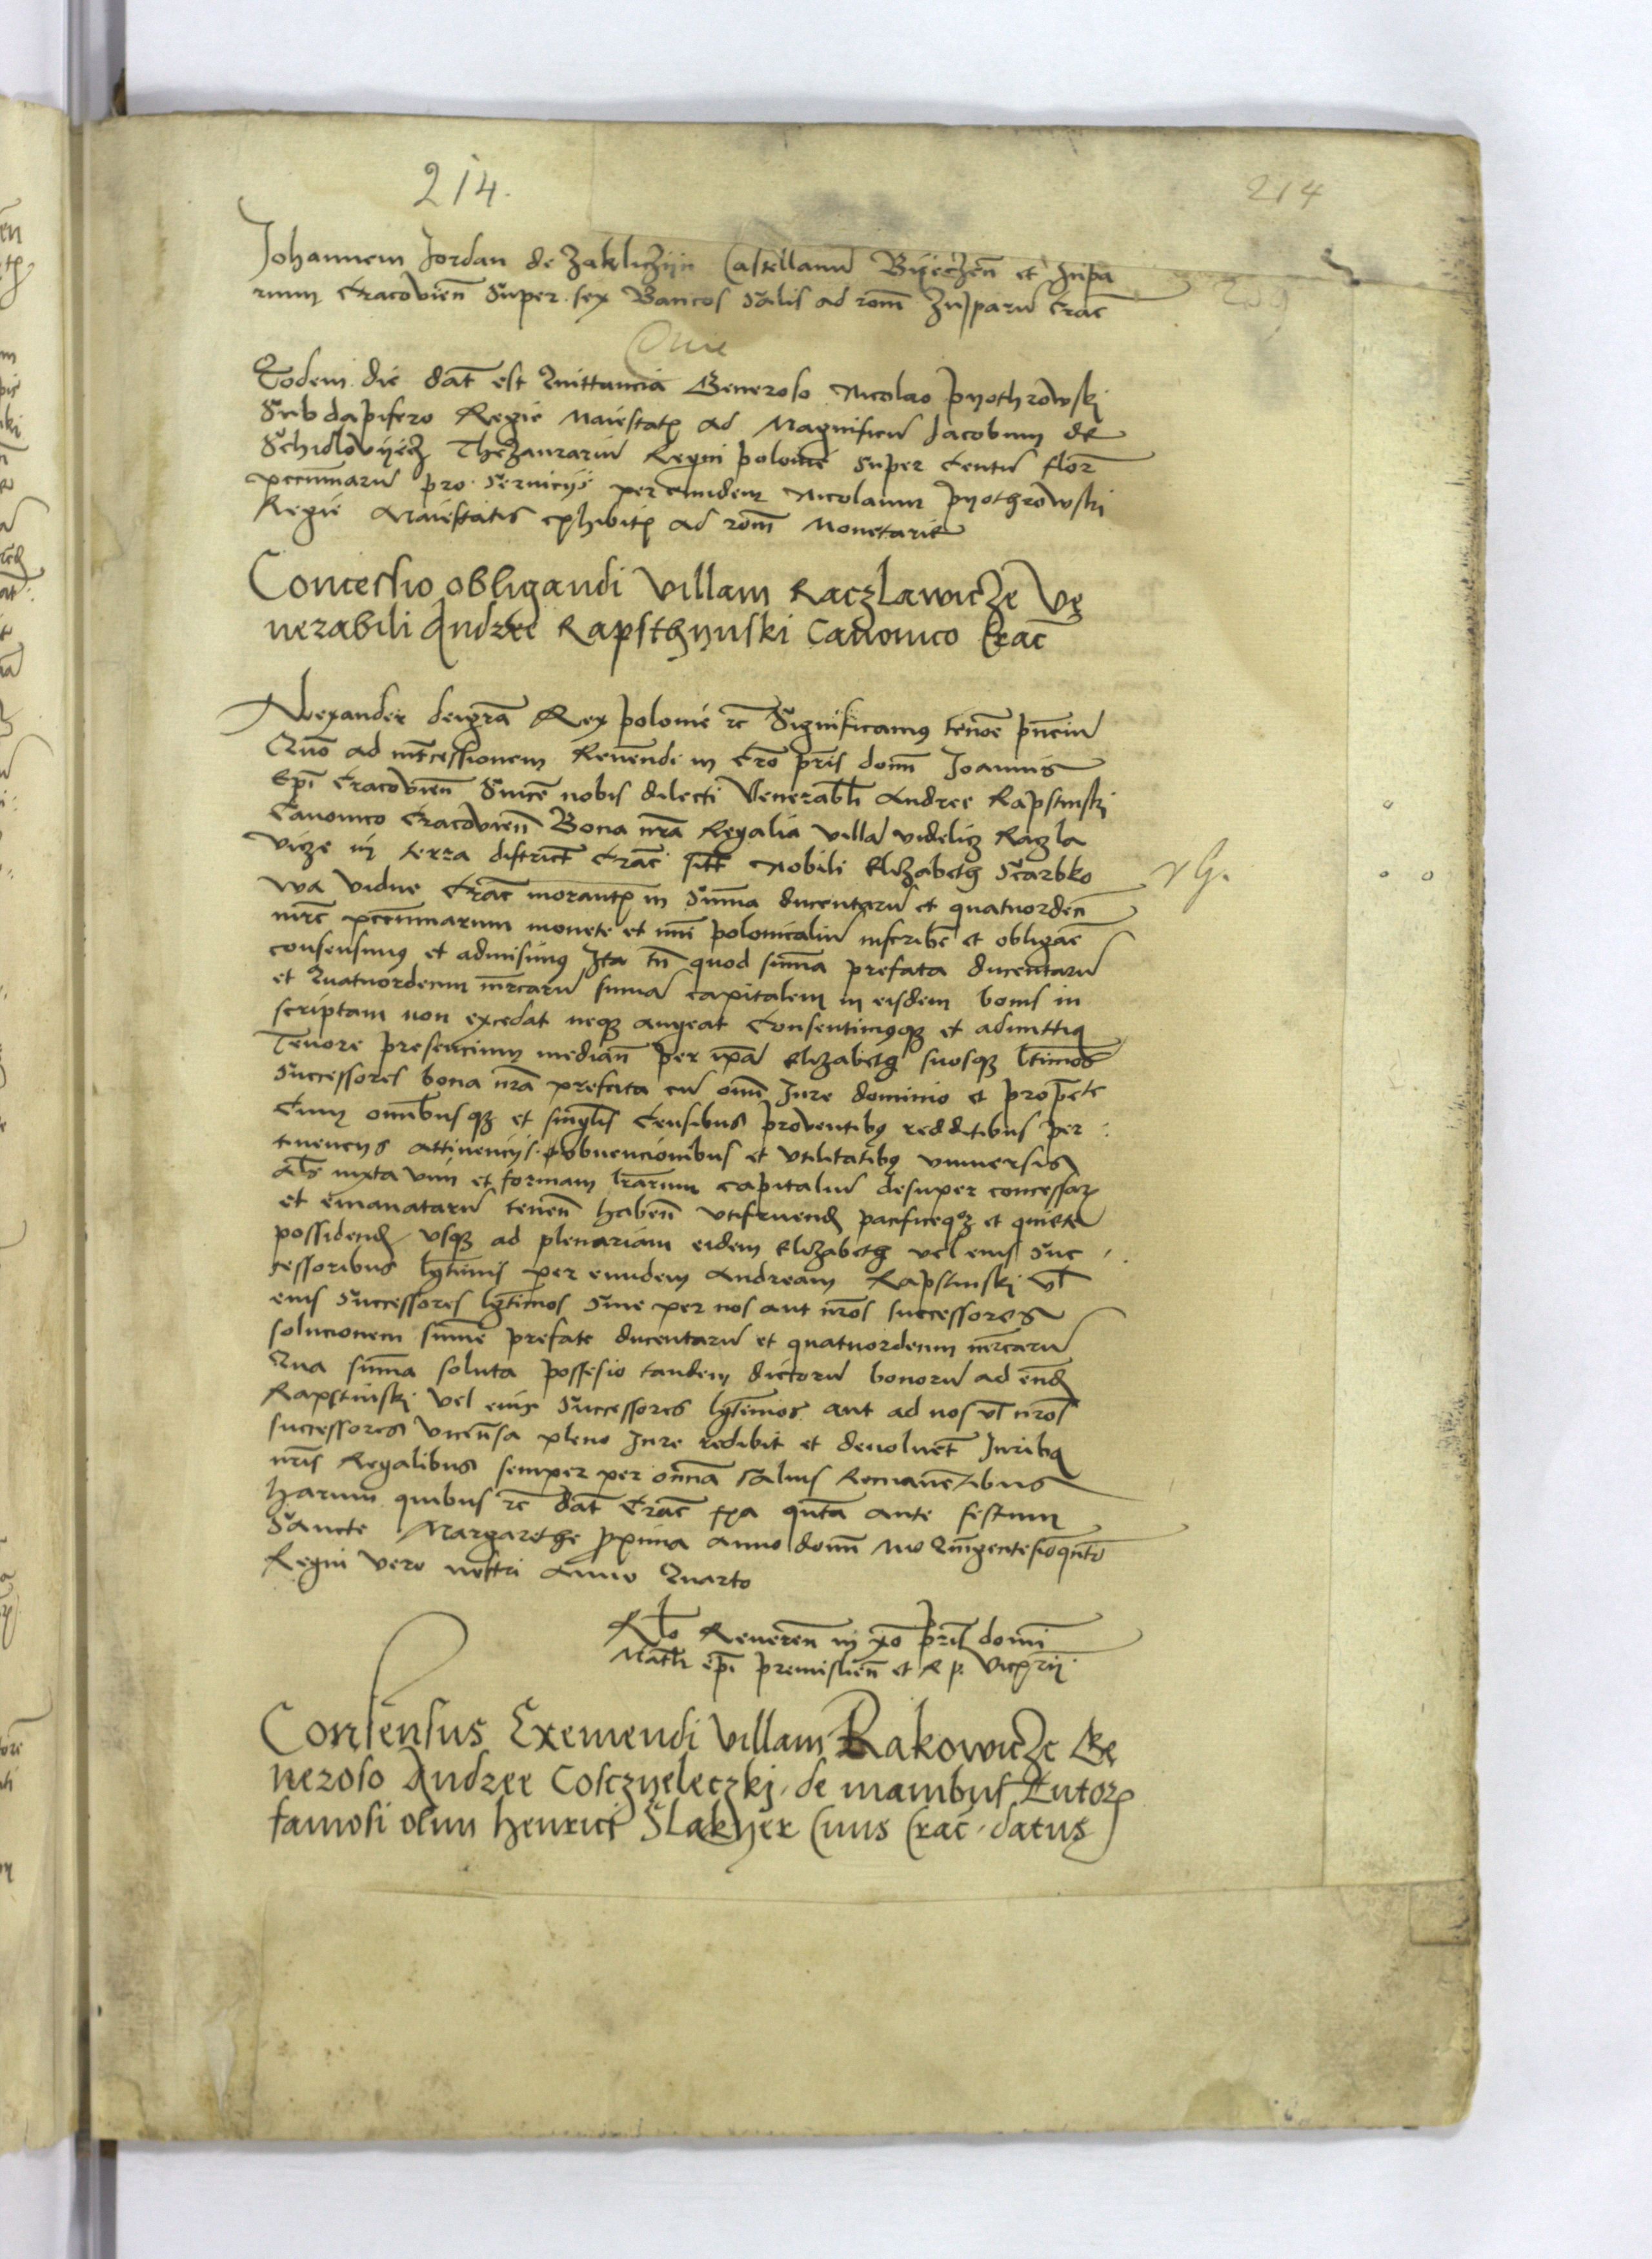 214.
214
Johannem Jordan de Zakliczijn Castellanu Byeczen et zupa
rium Cracovien Super sex Bancos Salis ad rom Zupparu Crac
Eodem die dat est Quittancia Generoso Nicolao Pyothrowskj
Subdapifero Regie Maiestatis ad Magnificu Jacobum de
Schidlovyecz Thezaurariu Regni polonie Super Centu flor
peccuniaru pro Serviciis per eundem Nicolaum Pyothrowski
Regie Maiestatis exhibitis ad rom Monetarie
Concessio obligandi villam Raczlawicze Ve
nerabili Andree Rapsthynski Canonico Crac
Alexander dei gra Rex polonie rc Significamus tenore pncium
Quo ad intcessionem Reverendi in Cro pris domi Joannis
Epi Cracovien Sincere nobis dilecti Venerabli Andree Rapstinskj
Canonico Cracovien Bona nra Regalia villa videlicz Razla
vicze in terra district Crac sitt Nobili Elizabeth Scarbko
wa vidue Crac morantis in Suma ducentaru et quatuordeci
mrc peccuniarum monete et nui polonicaliu inscribe et obligare
consensimus et admisimus Ita tn quod summa prefata ducentaru
et Quatuordecim mrcaru suma capitalem in eisdem bonis in
scriptam non excedat neqz augeat Consentimusqz et admittimus
Tenore presencium median per ipa Elizabeth suosqz ltimos
Successores bona nra prefata cu omni Jure dominio et propete
Cum omibusqz et singlis Censibus proventibus redditibus per
tinencys attinencijs obvencionibus et utilitatibus universis
als iuxta vim et formam lrarum capitaliu desuper concessar
et emanataru tenen haben utifruend pacificeqz et quiete
possidend usqz ad plenariam eidem Elizabeth vel eius Suc
cessoribus lgtimis per eundem Andream Rapstinski vl
eius Successores lgtimos Sive per nos aut nros successores
solucionem sume prefate ducentaru et quatuordecim mrcaru
Qua suma soluta possesio tandem dictoru bonoru ad eund
Rapstinski vel eius Successores lgtimos aut ad nos vl nros
successores viceversa pleno Jure redibit et devolvet Juribus
nris Regalibus semper per omnia Salvis Remanentibus
harum quibus rc dat Crac fxa qnta ante festum
Sancte Margarethe pxima anno domi Mo Quingentesioqnto
Regni vero nostri anno Quarto
Rlo Reveren in xo pris domi
Mathi epi premislien et R p vicecrij
Consensus Exemendi villam Rakowicze Ge
neroso Andree Cosczyeleczkj de manibus Tutor
famosi olim Henrici Slakyer Civis Crac datus